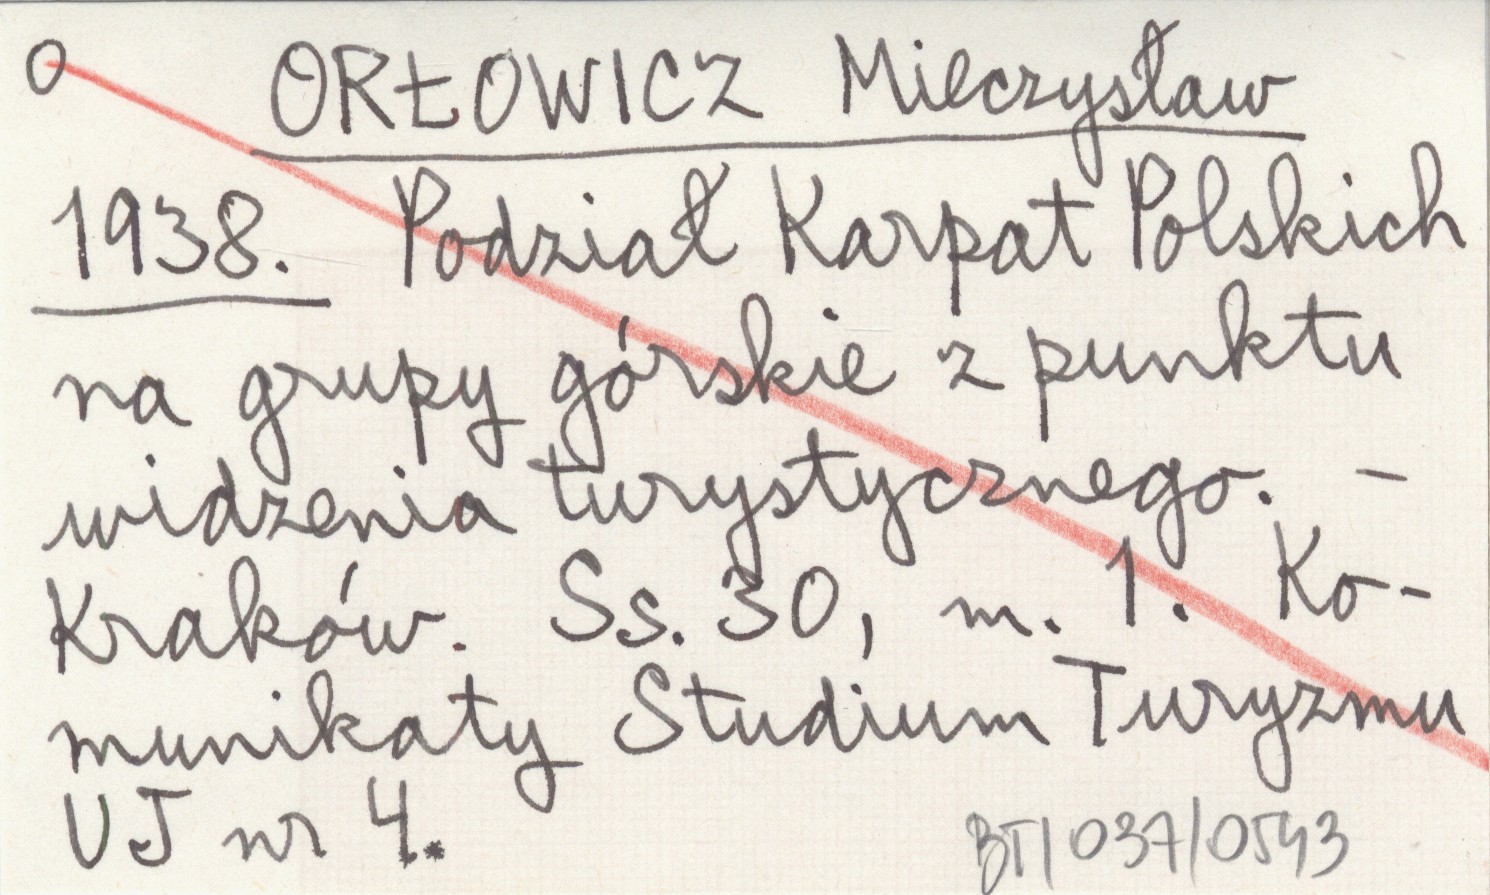 O ORŁOWICZ Mieczysław
1938. Podział Karpat Polskich
na grupy górskie z punktu
widzenia turystycznego. –
Kraków. Ss. 30, m. 1. Ko-
munikaty Studium Turyzmu
UJ nr 4.
BT/037/0543